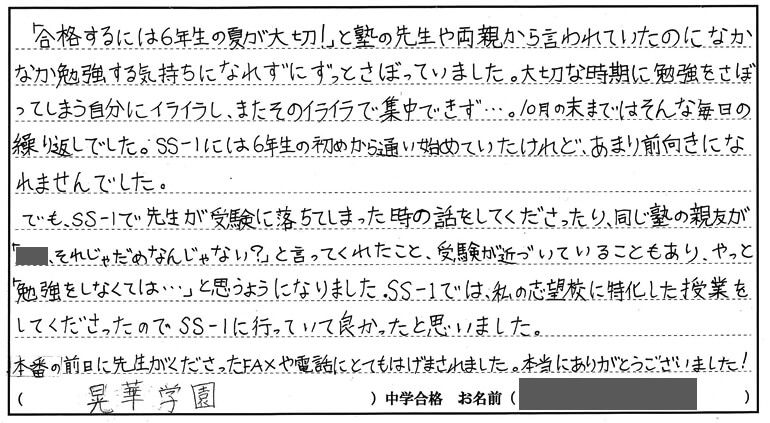 「合格するには6年生の夏が大切!」と塾の先生や両親から言われていたのになか
なか勉強する気持ちになれずにずっとさぼっていました。大切な時期に勉強をさぼ
ってしまう自分にイライラし、またそのイライラで集中できず…。10月の末まではそんな毎日の
繰り返しでした。SS-1には6年生の初めから通い始めていたけれど、あまり前向きにな
れませんでした。
でも、SS-1で先生が受験に落ちてしまった時の話をしてくださったり、同じ塾の親友が
「、それじゃだめなんじゃない?」と言ってくれたこと、受験が近づいていることもあり、やっと
「勉強をしなくては…」と思うようになりました。SS-1では、私の志望校に特化した授業を
してくださったのでSS-1に行っていて良かったと思いました。
本番の前日に先生がくださったFAXや電話にとてもはげまされました。本当にありがとうございました!
(晃華学園)中学合格 お名前()